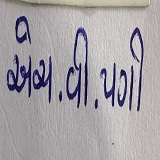 એચ.વી.પગી